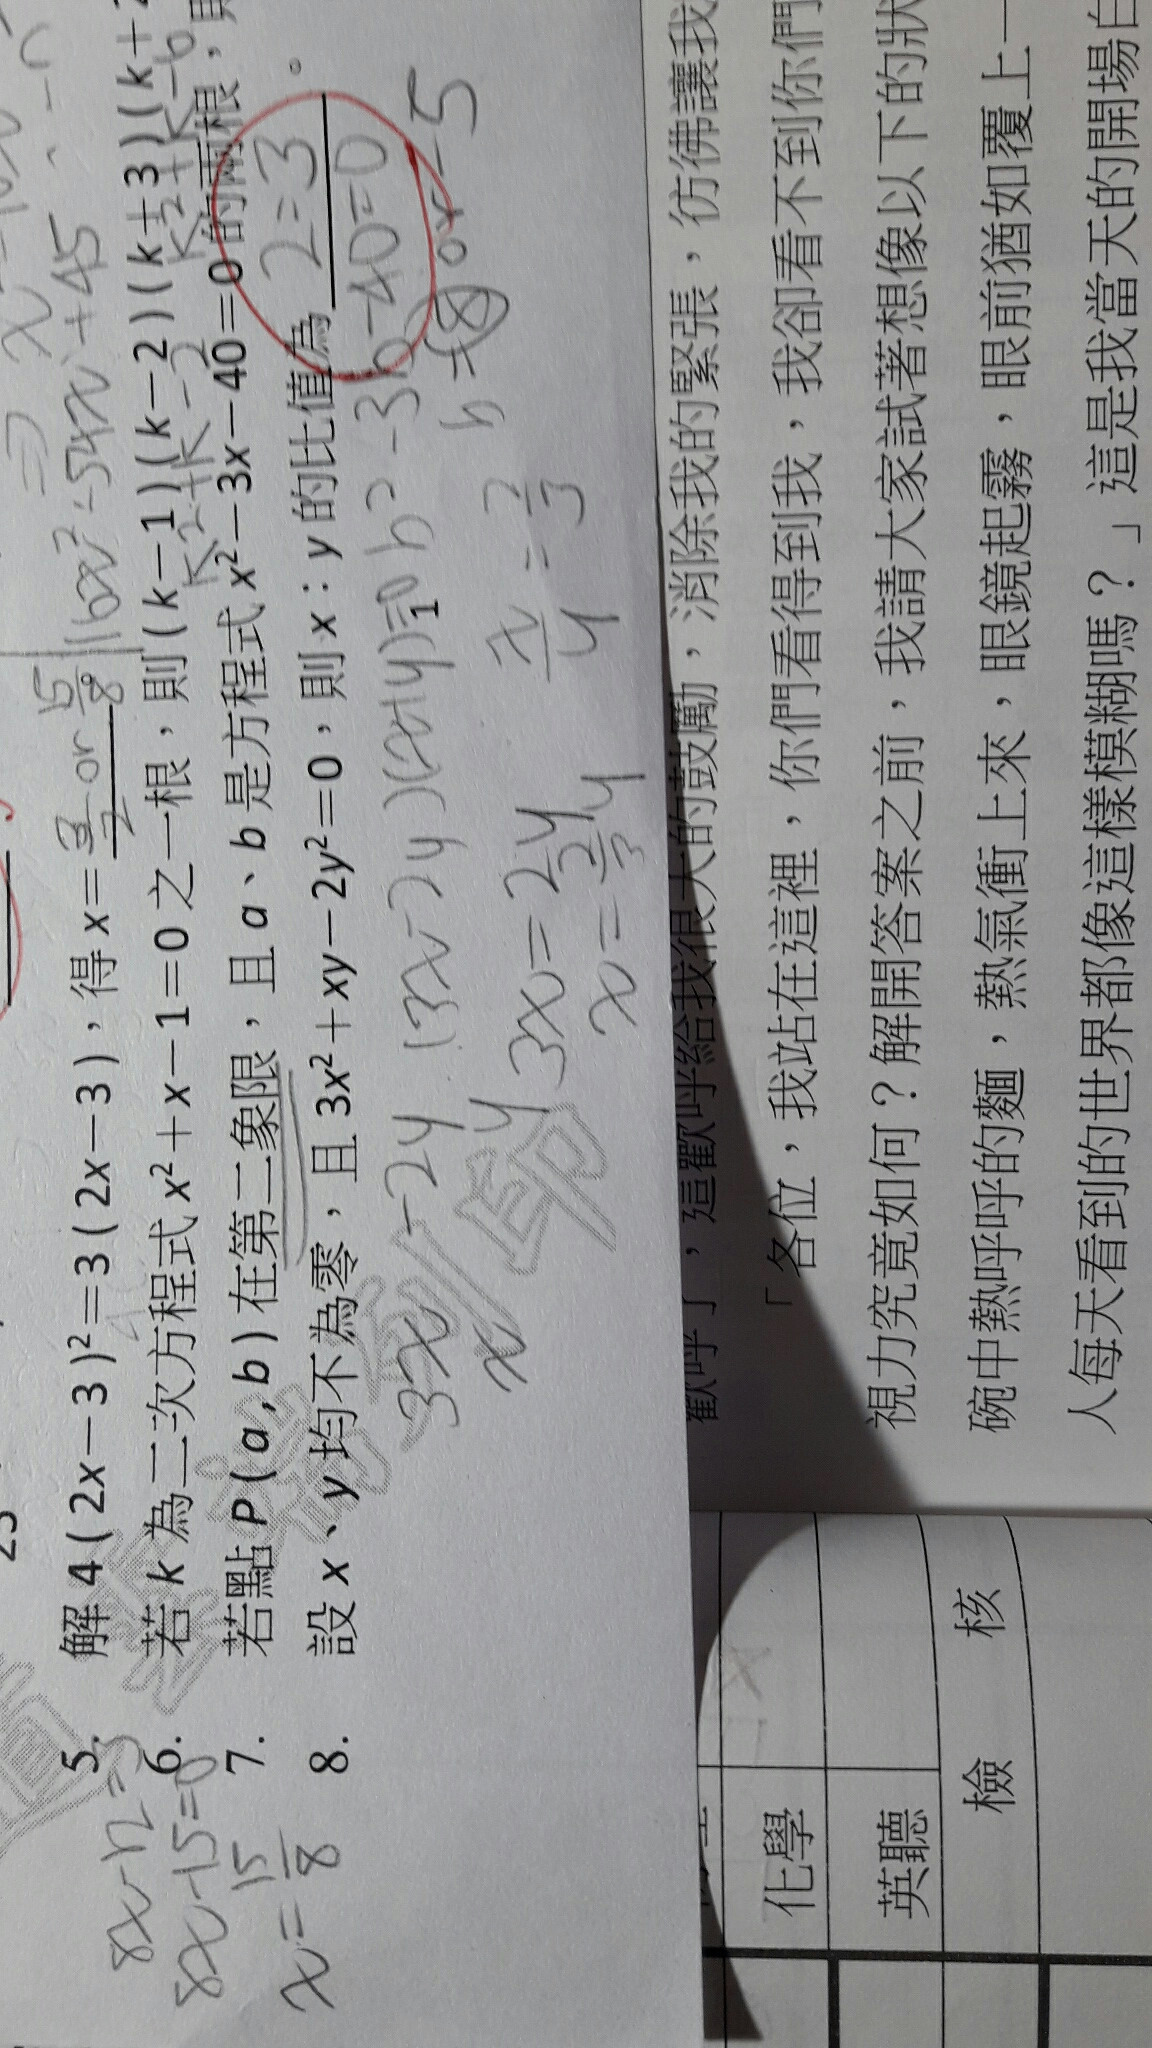 解 4(2x－3)²＝3(2x－3)，得 x＝3/2 or 15/8
16x²-54x+45
6. 若 k 為二次方程式 x²＋x－1＝0 之一根，則 (k－1)(k－2)(k＋3)(k＋
k²+k-2
k²+k-6
7. 若點 P(a, b) 在第二象限，且 a、b 是方程式 x²－3x－40＝0 的兩根，
8. 設 x、y 均不為零，且 3x²＋xy－2y²＝0，則 x：y 的比值為 2=3 。
3x -2y
x y
(3x-2y)(x+y)=0
b²-3b-40=0
b=8 or -5
3x=2y
x=2/3y
x/y=2/3
8x-12=3
8x-15=0
x=15/8
歡呼了，這歡呼給我很大的鼓勵，消除我的緊張，彷彿讓我
「各位，我站在這裡，你們看得到我，我卻看不到你們
視力究竟如何？解開答案之前，我請大家試著想像以下的狀
碗中熱呼呼的麵，熱氣衝上來，眼鏡起霧，眼前猶如覆上一
人每天看到的世界都像這樣模糊嗎？」這是我當天的開場白
化學
英聽
檢核